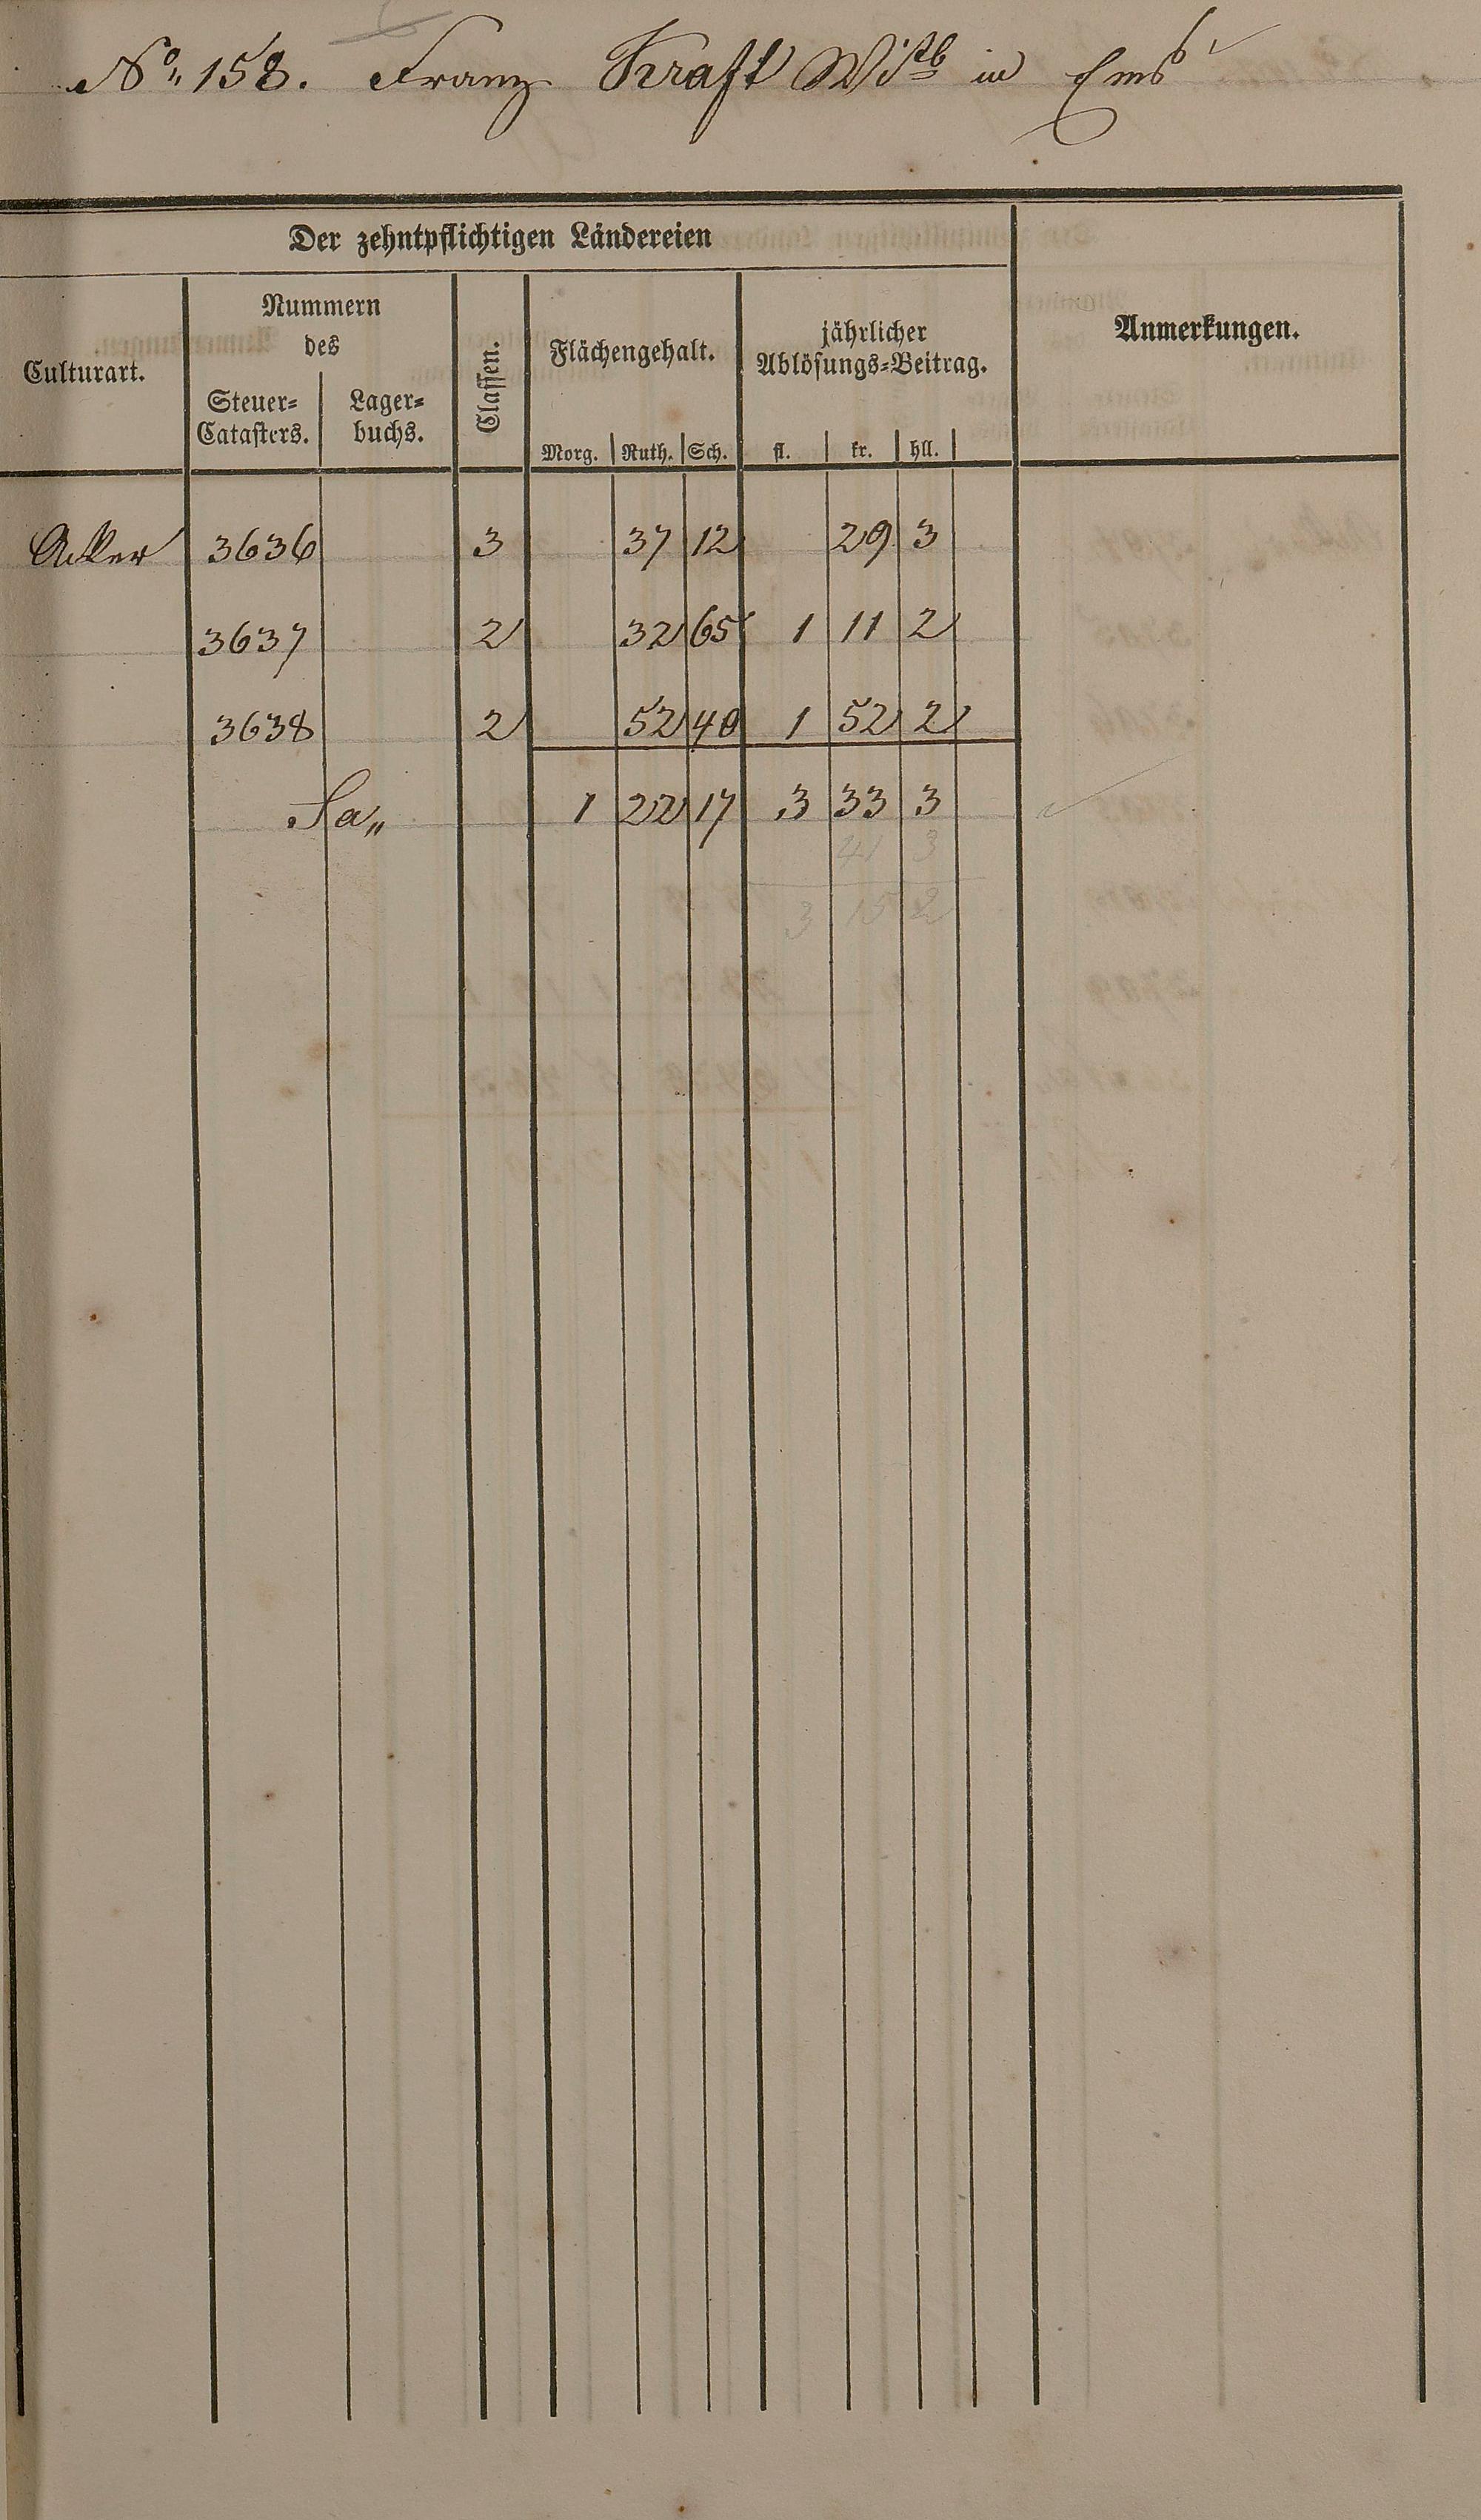 No„ 158. Franz Kraft Wtb in Ems
Der zehntpflichtigen Ländereien
Culturart. Nummern des Steuer-Catasters. Lagerbuchs. Classen. Flächengehalt. jährlicher Ablösungs-Beitrag. Anmerkungen.
Morg. Ruth. Sch. fl. kr. hll.
Acker 3636 3 37 12 29 3
3637 2 32 65 1 11 2
3638 2 52 40 1 52 2
Sa„ 1 22 17 3 33 3
41 3
3 15 2